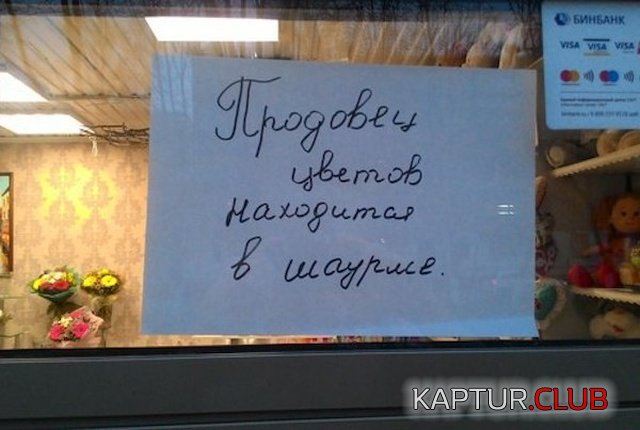 Продовец
цветов
находится
в шаурме.
БИНБАНК
VISA VISA VISA
KAPTUR.CLUB